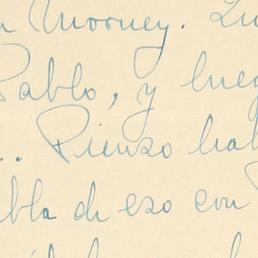 Morney. Lu
Pablo, y lueg
.. Pienso hab
bla de eso con